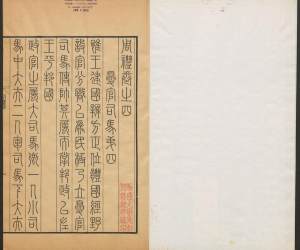 周禮卷之四
夏官司馬弟四
惟王建國辨方正位體國經野
設官分職以爲民極乃立夏官
司馬使帥其屬而掌邦政以佐
王平邦國
政官之屬大司馬卿一人小司
馬中大夫二人軍司馬下大夫